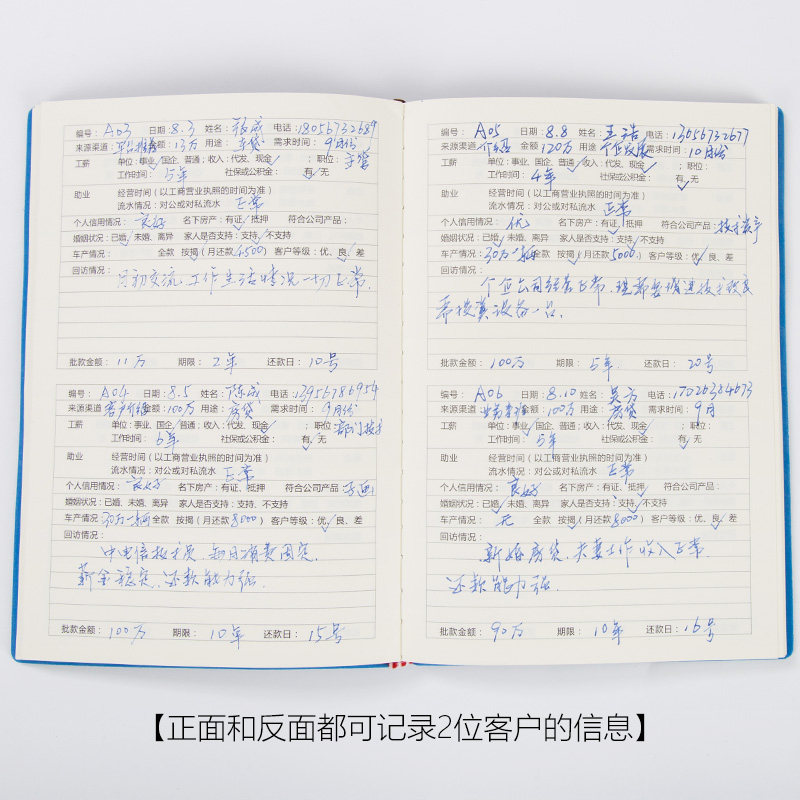 编号: A03 日期: 8.3 姓名: 张成 电话: 18056732689
来源渠道: 金额: 13万 用途: 车贷 需求时间: 9月份
工薪 单位: 事业、国企、普通; 收入: 代发、现金 ; 职位: 主管
工作时间: 5年 社保或公积金: 有、无
助业 经营时间 (以工商营业执照的时间为准)
流水情况: 对公或对私流水 正常
个人信用情况: 良好 名下房产: 有证、抵押 符合公司产品:
婚姻状况: 已婚、未婚、离异 家人是否支持: 支持、不支持
车产情况: 全款 按揭 (月还款4500) 客户等级: 优、良、差
回访情况:
月初交流,工作生活情况一切正常.
批款金额: 11万 期限: 2年 还款日: 10号
编号: A04 日期: 8.5 姓名: 陈成 电话: 13956786954
来源渠道: 客户介绍 金额: 100万 用途: 房贷 需求时间: 9月份
工薪 单位: 事业、国企、普通; 收入: 代发、现金 ; 职位: 部门
工作时间: 6年 社保或公积金: 有、无
助业 经营时间 (以工商营业执照的时间为准)
流水情况: 对公或对私流水 正常
个人信用情况: 良好 名下房产: 有证、抵押 符合公司产品:
婚姻状况: 已婚、未婚、离异 家人是否支持: 支持、不支持
车产情况: 30万一辆 全款 按揭 (月还款8000) 客户等级: 优、良、差
回访情况:
中电信技术员,每月消费固定,
薪金稳定,还款能力强.
批款金额: 100万 期限: 10年 还款日: 15号
编号: A05 日期: 8.8 姓名: 王浩 电话: 13656732677
来源渠道: 介绍 金额: 120万 用途: 个企发展 需求时间: 10月份
工薪 单位: 事业、国企、普通; 收入: 代发、现金 ; 职位:
工作时间: 4年 社保或公积金: 有、无
助业 经营时间 (以工商营业执照的时间为准)
流水情况: 对公或对私流水 正常
个人信用情况: 优 名下房产: 有证、抵押 符合公司产品:
婚姻状况: 已婚、未婚、离异 家人是否支持: 支持、不支持
车产情况: 30万一辆 全款 按揭 (月还款5000) 客户等级: 优、良、差
回访情况:
个企公司经营正常,现都要增进技术
设备一台.
批款金额: 100万 期限: 5年 还款日: 20号
编号: A06 日期: 8.10 姓名: 吴方 电话: 17026384673
来源渠道: 金额: 100万 用途: 房贷 需求时间: 9月
工薪 单位: 事业、国企、普通; 收入: 代发、现金 ; 职位:
工作时间: 5年 社保或公积金: 有、无
助业 经营时间 (以工商营业执照的时间为准)
流水情况: 对公或对私流水 正常
个人信用情况: 良好 名下房产: 有证、抵押 符合公司产品:
婚姻状况: 已婚、未婚、离异 家人是否支持: 支持、不支持
车产情况: 无 全款 按揭 (月还款8000) 客户等级: 优、良、差
回访情况:
新婚房贷,夫妻工作收入正常.
还款能力强.
批款金额: 90万 期限: 10年 还款日: 16号
【正面和反面都可记录2位客户的信息】